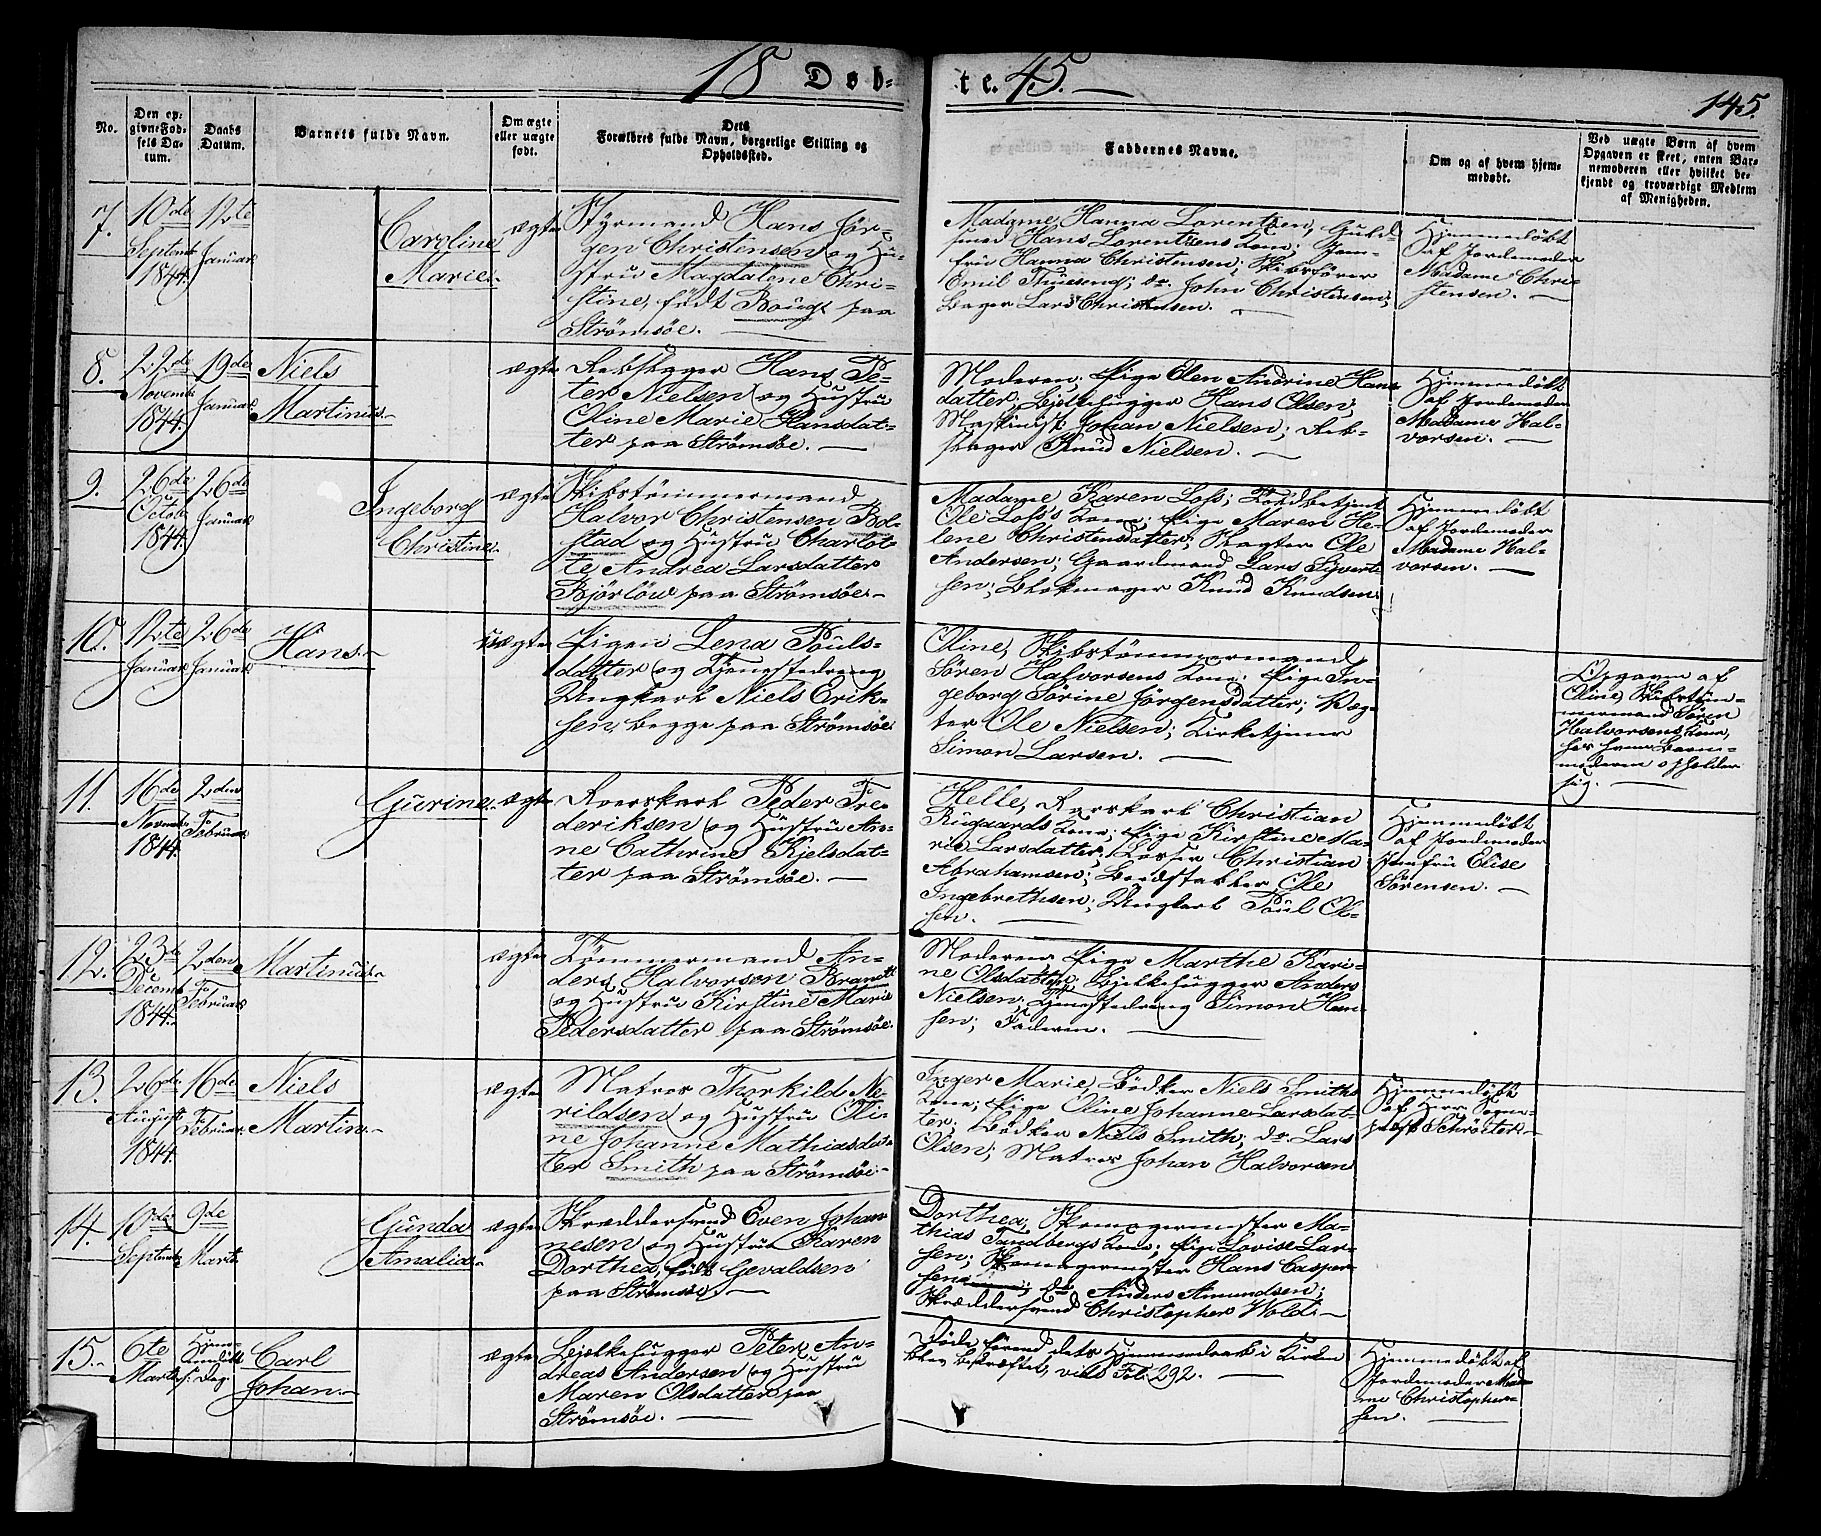 18 Døb-
te. 45.
145.
No.
Den op-
givne Fød-
sels Da-
tum.
Daabs
Datum.
Barnets fulde Navn.
Om ægte
eller uægte
født.
Dets
Forældres fulde Navn, borgerlige Stilling og
Opholdssted.
Faddernes Navne.
Om og af hvem hjem-
medøbt.
Ved uægte Børn af hvem
Opgaven er skeet, enten Bar-
nemoderen eller hvilket be-
kjendt og troværdigt Medlem
af Menigheden.
7.
10de
Septemb.
1844.
12te
Januar
Caroline
Marie.
ægte
Styrmand Hans Jør-
gen Christensen og Hu-
strue Magdalene Chri-
stine, født Bougt paa
Strømsøe.
Madame Hanna Lorentzen, Guld-
smed Hans Lorentzens Kone; Jom-
fru Hanna Christensen; Skibsfører
Emil Thuesend; do. John Christensen;
Bager Lars Christensen.
Hjemmedøbt
af Jordemoder
Madame Chri-
stensen.
8.
22de
Novemb.
1844.
19de
Januar
Niels
Martinus.
ægte
Rebslager Hans Pe-
ter Nielsen og Hustrue
Oline Marie Hansdat-
ter paa Strømsøe.
Moderen; Pige Elen Andrine Hans
datter; Bjelkehugger Hans Olsen;
Maskinist Johan Nielsen; Reb-
slager Knud Nielsen.
Hjemmedøbt
af Jordemoder
Madame Hal-
vorsen.
9.
26de
Octob.
1844.
26de
Januar
Ingeborg
Christine.
ægte
Skibstømmermand
Halvor Christensen Bol-
stad og Hustrue Charlot-
te Andrea Larsdatter
Bjørlow paa Strømsøe.
Madame Karen Loss; Toldbetjent
Ole Loss's Kone; Pige Maren He-
lene Christensdatter; Vægter Ole
Andersen; Gaardmand Lars Syvert-
sen; Blokmager Knud Knudsen.
Hjemmedøbt
af Jordemoder
Madame Hal-
vorsen.
10.
12te
Januar
26de
Januar
Hans.
uægte
Pigen Lena Pouls-
datter og Tjenestedreng
Ungkarl Niels Erik-
sen, begge paa Strømsøe
Oline, Skibstømmermand
Søren Halvorsens Kone; Pige In-
geborg Sørine Jørgensdatter; Væg-
ter Ole Nielsen; Kirketjener
Simon Larsen.
Opgaven af
Oline, Skibstøm-
mermand Søren
Halvorsens Kone,
hos hvem Barne-
moderen opholder
sig.
11.
16de
Novemb.
1844.
2den
Februar
Gurine.
ægte
Roerskarl Peder Fre-
deriksen og Hustrue An-
ne Cathrine Kjelsdat-
ter paa Strømsøe.
Helle, Roerskarl Christian
Rugaards Kone; Pige Kirstine Ma-
rie Larsdatter; Losser Christian
Abrahamsen; Bordstabler Ole
Ingebrethsen; Ungkarl Poul Ol-
sen.
Hjemmedøbt
af Jordemoder
Jomfru Elise
Sørensen.
12.
23de
Decemb.
1844.
2den
Februar
Martinus.
ægte
Tømmermand An-
ders Halvorsen Branett
og Hustrue Kirstine Marie
Pedersdatter paa Strømsøe.
Moderen; Pige Marthe Kari-
ne Olsdatter; Bjelkehugger Anders
Nielsen; Tjenestedreng Simon Han-
sen; Faderen.
13.
26de
August
1844.
16de
Februar
Niels
Martin.
ægte
Matros Thorkild Ne-
rildsen og Hustrue Oli-
ne Johanne Mathiasdat-
ter Smith paa Strømsøe.
Inger Marie, Bødker Niels Smiths
Kone; Pige Oline Johanne Larsdat-
ter; Bødker Niels Smith; do. Lars
Olsen; Matros Johan Halvorsen
Hjemmedøbt
af Herr Sogne-
præst Schrøeter.
14.
10de
Septemb.
9de
Marts
Gunda
Amalia.
ægte
Skrædersvend Even Johan-
nesen og Hustrue Karen
Dorthea, født Gevaldsen
paa Strømsøe.
Dorthea, Skomagermester Ma-
thias Tandbergs Kone; Pige Lovise Lar-
sen; Skomagermester Hans Casper-
sen; do. Anders Amundsen;
Skræddersvend Christopher Wold.
15.
6te
Marts
Hjem-
medøbt
s. Dag.
Carl
Johan.
ægte
Bjelkehugger Peter An-
dreas Andersen og Hustrue
Maren Olsdatter paa
Strømsøe.
Døde førend dets Hjemmedaab i Kirken
blev bekræftet, vide Fol. 292.
Hjemmedøbt af
Jordemoder Mada-
me Christopher-
sen.